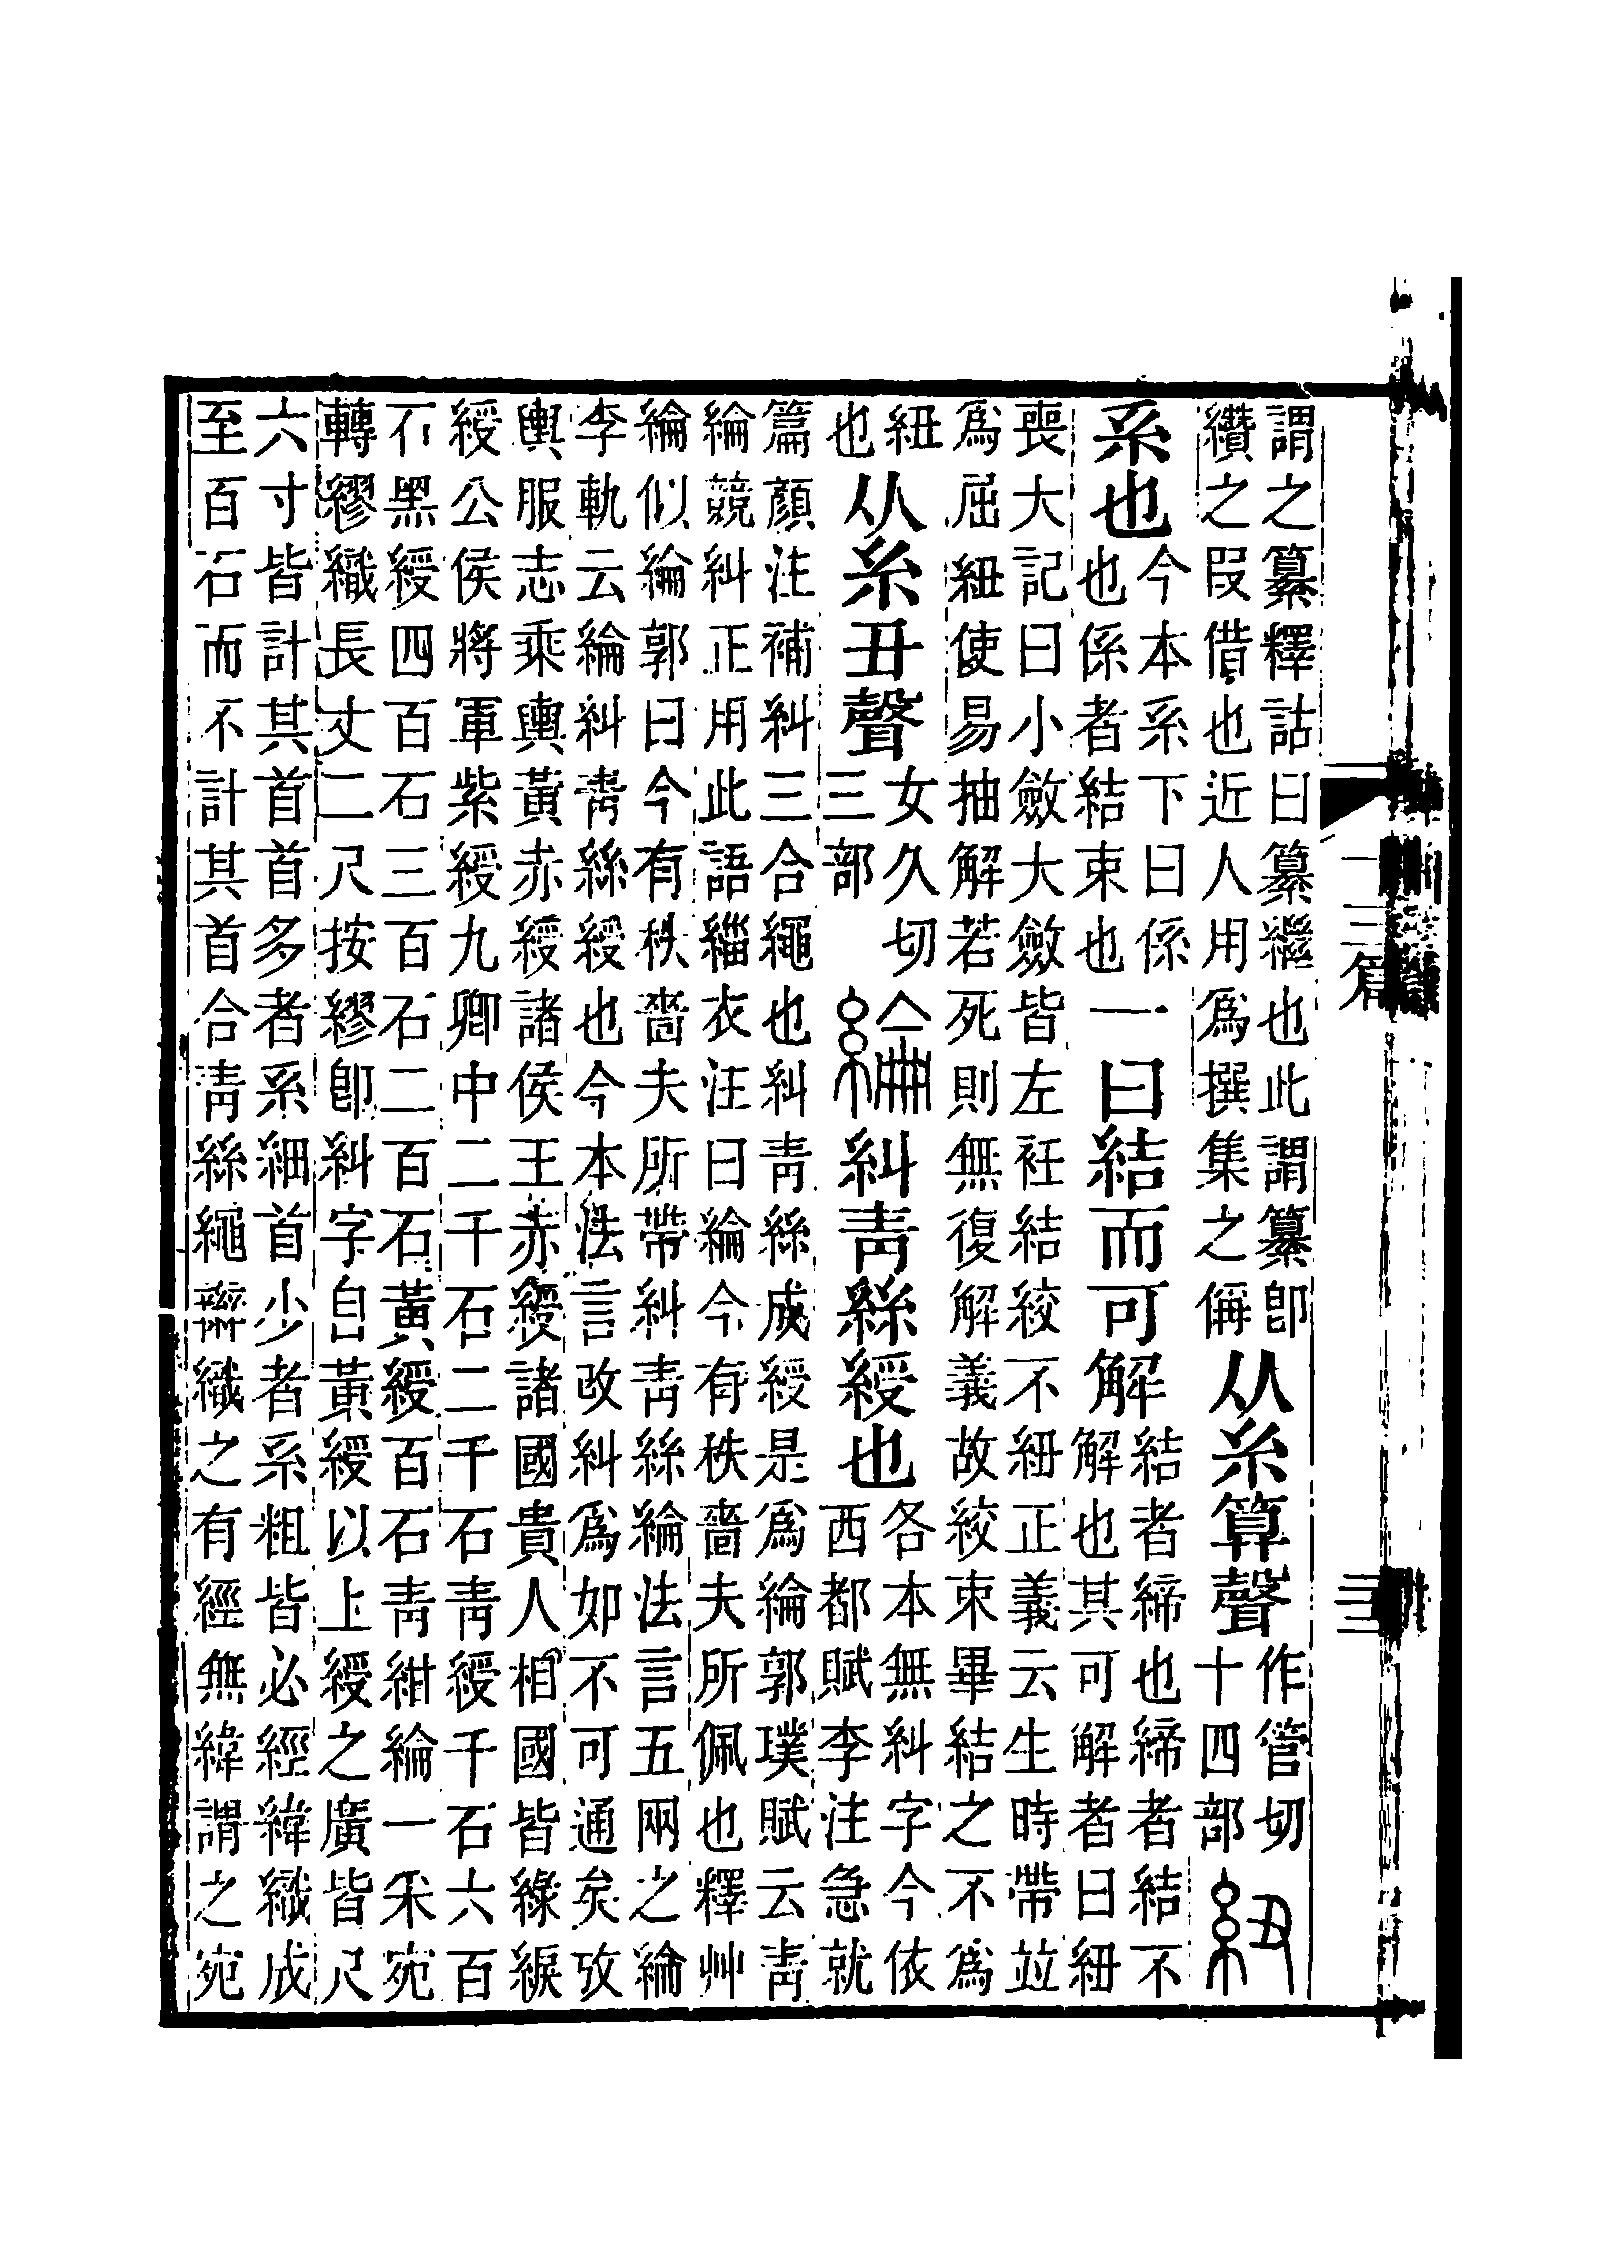 謂之纂釋詁曰纂繼也此謂纂卽
纘之叚借也近人用爲撰集之偁
从糸算聲
作管切
十四部
紐
系也
今本系下曰係
也係者結束也
一曰結而可解
結者締也締者結不
解也其可解者曰紐
喪大記曰小斂大斂皆左衽結絞不紐正義云生時帶竝
爲屈紐使易抽解若死則無復解義故絞束畢結之不爲
紐
也
从糸丑聲
女久切
三部
綸
糾靑絲綬也
各本無糾字今依
西都賦李注急就
篇顏注補糾三合繩也糾靑絲成綬是爲綸郭璞賦云靑
綸競糾正用此語緇衣注曰綸今有秩嗇夫所佩也釋艸
綸似綸郭曰今有秩嗇夫所帶糾靑絲綸法言五兩之綸
李軌云綸糾靑絲綬也今本法言改糾爲如不可通矣攷
輿服志乘輿黃赤綬諸侯王赤綬諸國貴人相國皆綠綟
綬公侯將軍紫綬九卿中二千石二千石靑綬千石六百
石黑綬四百石三百石二百石黃綬百石靑紺綸一采宛
轉繆織長丈二尺按繆卽糾字自黃綬以上綬之廣皆尺
六寸皆計其首首多者系細首少者系粗皆必經緯織成
至百石而不計其首合靑絲繩辮織之有經無緯謂之宛